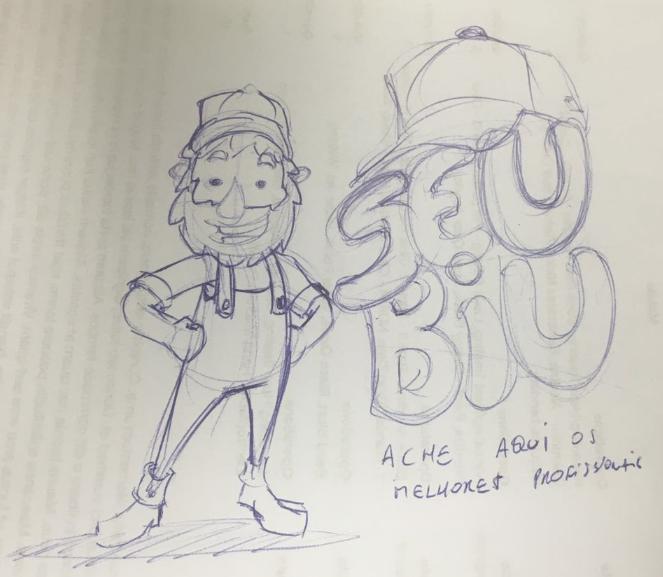 SEU
BIU
ACHE AQUI OS
MELHORES PROFISSIONAIS